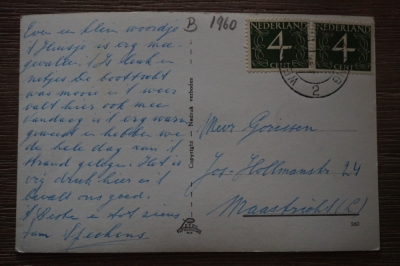 Even een klein woordje
't Huisje is erg mee-
gevallen. 't Is leuk en
netjes. De boottocht
was mooi en 't weer
valt hier ook mee
Vandaag is 't erg warm
geweest en hebben we
de hele dag aan 't
strand gelegen. Het is
vrij druk hier en 't
bevalt ons goed.
't Beste en tot ziens
Fam
B 1960
NEDERLAND
4
CENT
NEDERLAND
4
CENT
2
Copyright — Nadruk verboden
Mevr. Gorissen
Jos. Hollmanstr 24
Maastricht (L)